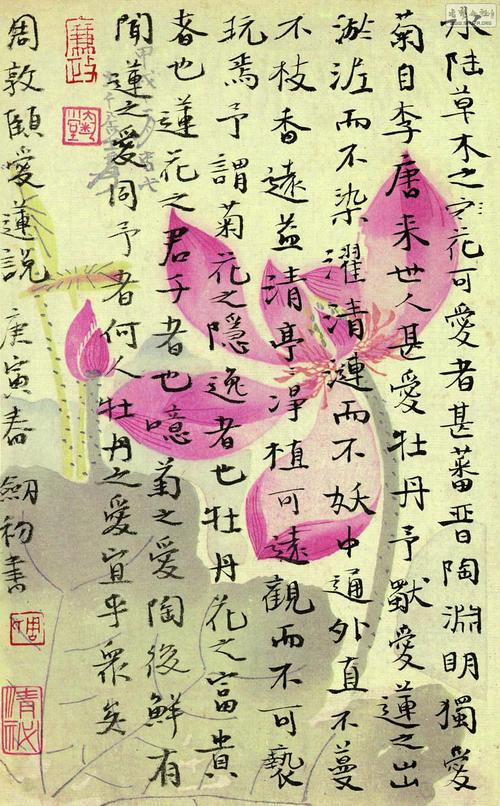 水陸草木之花可愛者甚蕃晉陶淵明獨愛
菊自李唐来世人甚愛牡丹予獨愛蓮之出
淤泥而不染濯清漣而不妖中通外直不蔓
不枝香遠益清亭淨植可遠觀而不可褻
玩焉予謂菊花之隱逸者也牡丹花之富貴
者也蓮花之君子者也噫菊之愛陶後鮮有
聞蓮之愛同予者何人牡丹之愛宜乎衆矣
周敦頤愛蓮說 庚寅春 劒初書
廉政